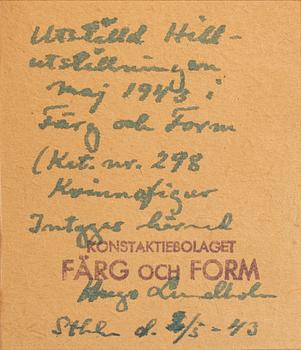 Utställd Hill-
utställningen
maj 1943 i
Färg och Form
(Kat. nr. 298
Kvinnofigur
Intygar härmed
KONSTAKTIEBOLAGET
FÄRG OCH FORM
Hugo Lindholm
Sthlm d. 2/5 - 43